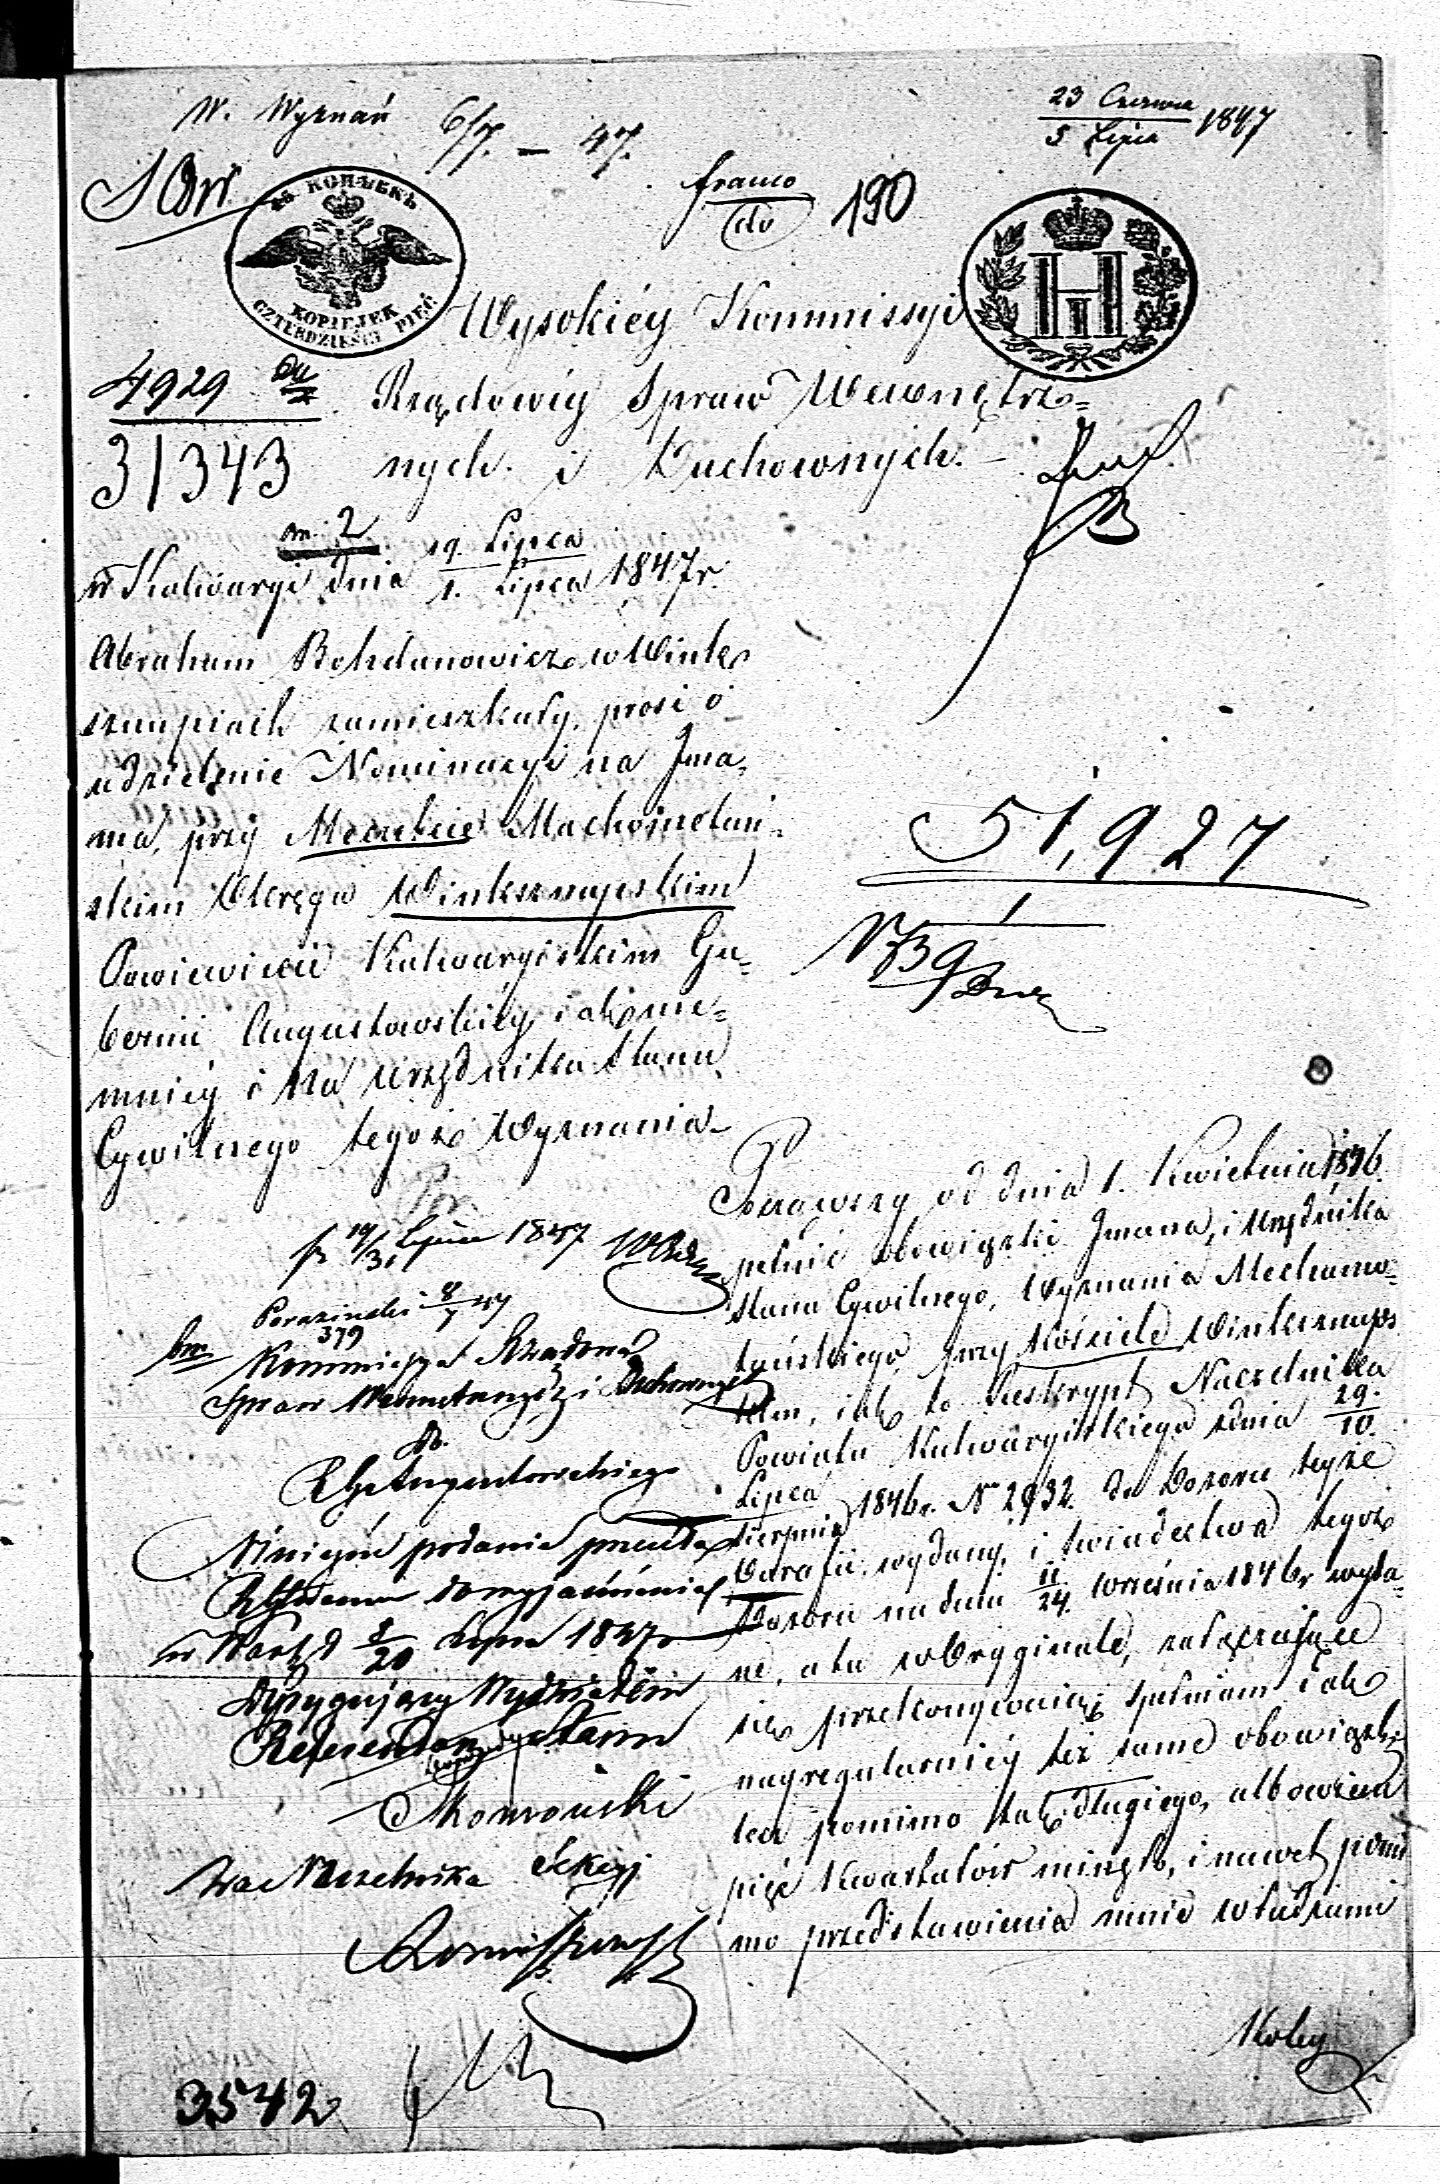 W. Wyznań 6/7. – 47.
23 Czerwca
5 Lipca 1847
franco
do
190
45 КОПѢЕКЪ
KOPIEJEK
CZTERDZIEŚCI PIĘĆ
H
Wysokiéy Kommissyi
Rządowéy Spraw Wewnętrz=
nych. i Duchownych. –
4929
31343
m. 2
w Kalwaryi dnia 19. Lipca
1. Lipca 1847 r.
Abraham Bohdanowicz w Winks
sznupiach zamieszkały, prosi o
udzielenie Nominacyi na Jma-
ma, przy Meczecie Machometań-
skim Okręgu Winksznupskim
Powiewiecie Kalwaryiskim Gu=
bernii Augustowskiéy, i ako nie=
mniéy i na Urzędnika Stanu
Cywilnego tegoż Wyznania
51,927
1
1739
Lipca 1847
379
Kommissya Rządowa
Spraw Wewnetrznych i Duchownych
do
RGo Augustowskiego
Niniejsze podanie przesyła
do wyjaśnienia
w Warsz d 8/20 Lipca 1847 r
Dyrygujący Wydziałem
Referendarz Stanu
za Naczelnika Sekcyi
3542
Począwszy od dnia 1. Kwietnia 1846.
pełnić obowiązki Jmama, i Urzędnika
Stanu Cywilnego, Wyznania Mechame=
tańskiego przy Kościele Winksznups
kim, iak to Reskrypt Naczelnika
Powiatu Kalwaryiskiego z dnia 29.
10.
Lipca
Sierpnia 1846 r. N 2932. do Dozoru teyże
Parafii wydany, i świadectwa tegoż
Dozoru na dniu 11
24. Września 1846 r wyda=
ne, a tu w Oryginale, załączaiące
się przekonywaią, spełniam iak
nayregularniéy też same obowiązki,
lecz pomimo tak długiego, albowiem
pięć Kwartałów minęło, i nawet pomi
mo przedstawienia mnie w ładzami
Koley